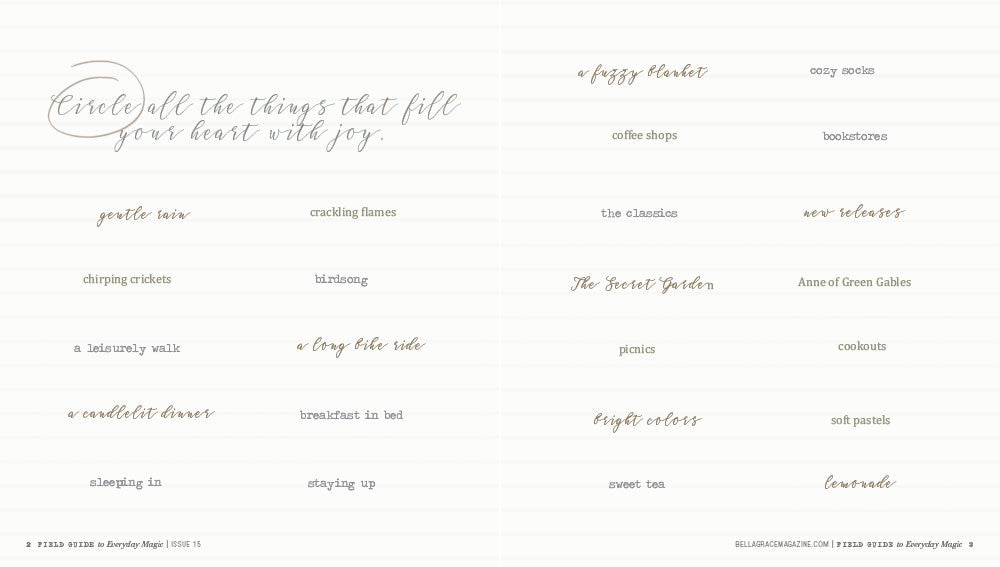 Circle all the things that fill
your heart with joy.
gentle rain
crackling flames
chirping crickets
birdsong
a leisurely walk
a long bike ride
a candlelit dinner
breakfast in bed
sleeping in
staying up
2 FIELD GUIDE to Everyday Magic | ISSUE 15
a fuzzy blanket
cozy socks
coffee shops
bookstores
the classics
new releases
The Secret Garden
Anne of Green Gables
picnics
cookouts
bright colors
soft pastels
sweet tea
lemonade
BELLAGRACEMAGAZINE.COM | FIELD GUIDE to Everyday Magic 3